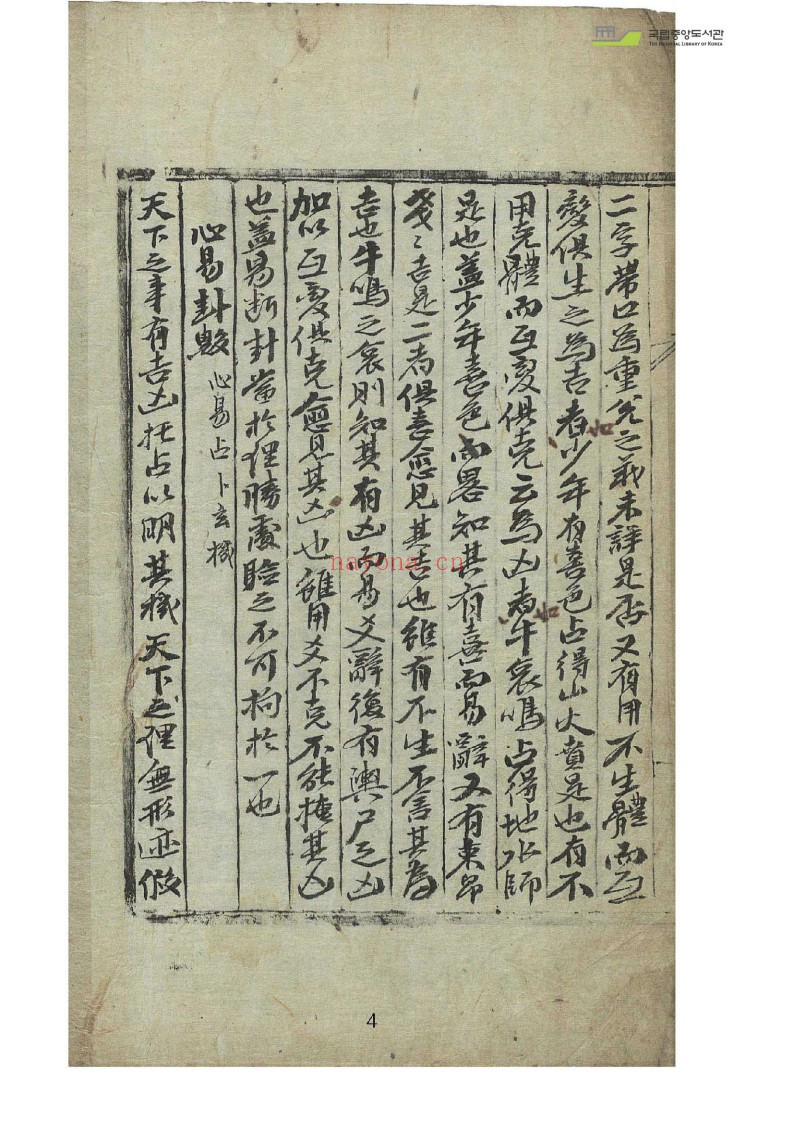 국립중앙도서관
THE NATIONAL LIBRARY OF KOREA
二字帶口為重兌之義未詳是否又有用不生體而互
變俱生之為吉者如少年有喜色占得山火賁是也有不
用克體而互變俱克云為凶者如牛哀鳴占得地水師
是也盖少年喜色而畧知其有喜而易辭又有束帛
戔〻吉是二者俱喜愈見其吉也雖有不生不害其為
吉也牛鳴之哀則知其有凶而易爻辭復有輿尸之凶
加以互變俱克愈見其凶也雖用爻不克不能掩其凶
也盖易断卦當於理勝處驗之不可拘於一也
心易卦數 心易占卜玄機
天下之事有吉凶托占以明其機天下之理無形迹假
nayona.cn
4